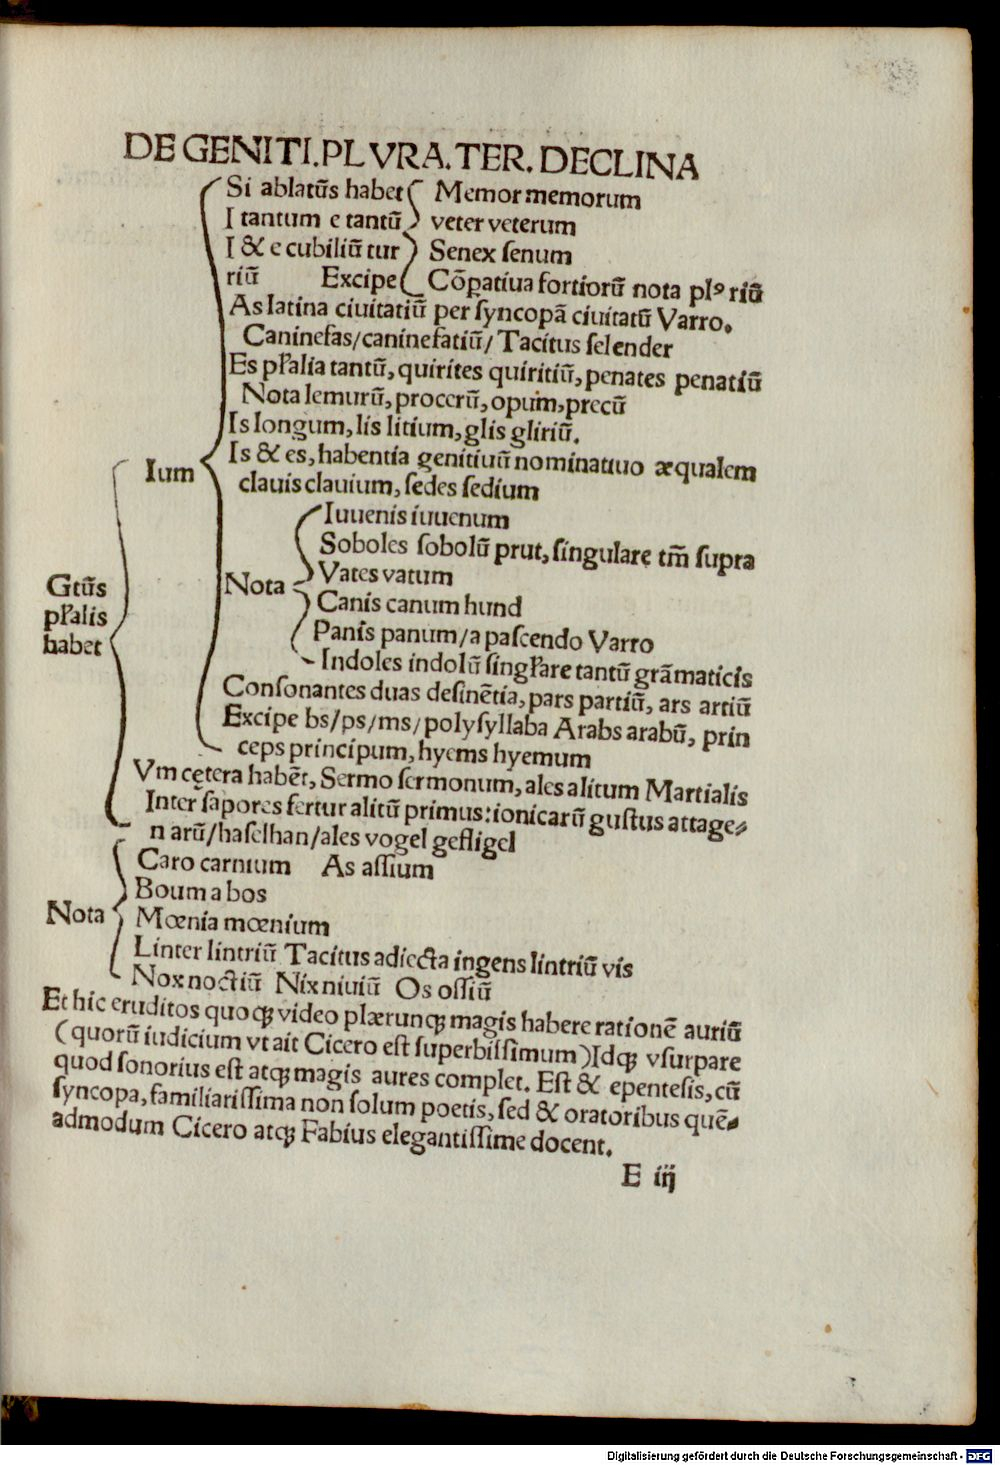 DE GENITI.PLVRA.TER.DECLINA
Si ablatūs habet Memor memorum
I tantum e tantū veter veterum
I & e cubiliū tur Senex ſenum
riū Excipe Cōpatiua fortiorū nota plꝰ riū
As latina ciuitatiū per ſyncopā ciuitatū Varro.
Caninefas/caninefatiū/Tacitus ſelender
Es pl̄ralia tantū, quirites quiritiū, penates penatiū
Nota lemurū, procerū, opum, precū
Is longum, lis litium, glis gliriū.
Ium Is & es, habentia genitiuū nominatiuo æqualem
clauis clauium, ſedes ſedium
Iuuenis iuuenum
Soboles ſobolū prut, ſingularę tm̄ ſupra
Gtūs Nota Vates vatum
pl̄ralis Canis canum hund
habet Panis panum/a paſcendo Varro
Indoles indolū ſingl̄are tantū grāmaticis
Conſonantes duas deſinētia, pars partiū, ars artiū
Excipe bs/ps/ms/polyſyllaba Arabs arabū, prin
ceps principum, hyems hyemum
Vm cętera habēt, Sermo ſermonum, ales alitum Martialis
Inter ſapores fertur alitū primus: ionicarū guſtus attage⸗
n arū/haſelhan/ales vogel gefligel
Caro carnium As aſſium
Boum a bos
Nota Mœnia mœnium
Linter lintriū Tacitus adiecta ingens lintriū vis
Nox noctiū Nix niuiū Os oſſiū
Et hic eruditos quoqꝫ video plærunqꝫ magis habere rationē auriū
(quorū iudicium vt ait Cicero eſt ſuperbiſſimum) Idqꝫ vſurpare
quod ſonorius eſt atqꝫ magis aures complet. Eſt & epentesis, cū
ſyncopa, familiariſſima non ſolum poetis, ſed & oratoribus quē⸗
admodum Cicero atqꝫ Fabius elegantiſſime docent.
E iij
Digitalisierung gefördert durch die Deutsche Forschungsgemeinschaft - DFG